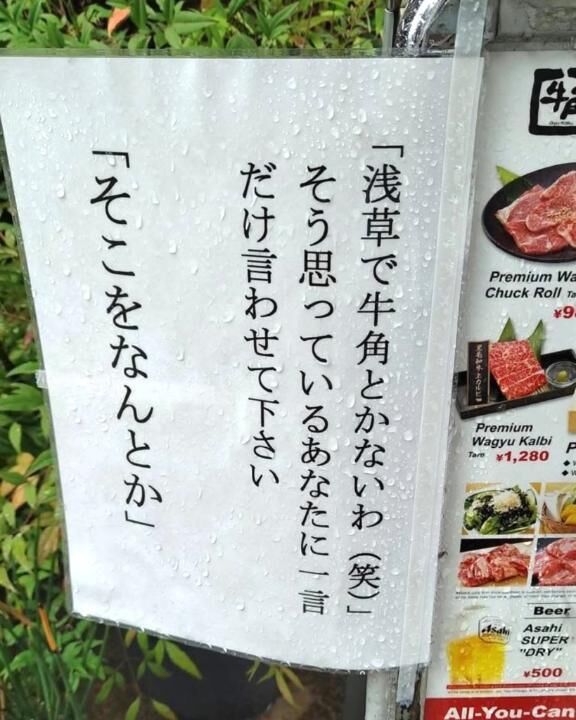 「浅草で牛角とかないわ（笑）」
そう思っているあなたに一言
だけ言わせて下さい
「そこをなんとか」
牛角
Premium Wa
Chuck Roll Ta
¥9
Premium
Wagyu Kalbi
Tare ¥1,280
Beer
Asahi
Asahi
SUPER
"DRY"
¥500
All-You-Can